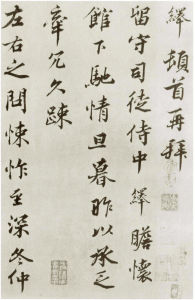 繹頓首再拜
留守司徒侍中繹瞻懷
館下馳情旦暮昨以承乏
冗久疎
左右之問悚怍至深冬仲